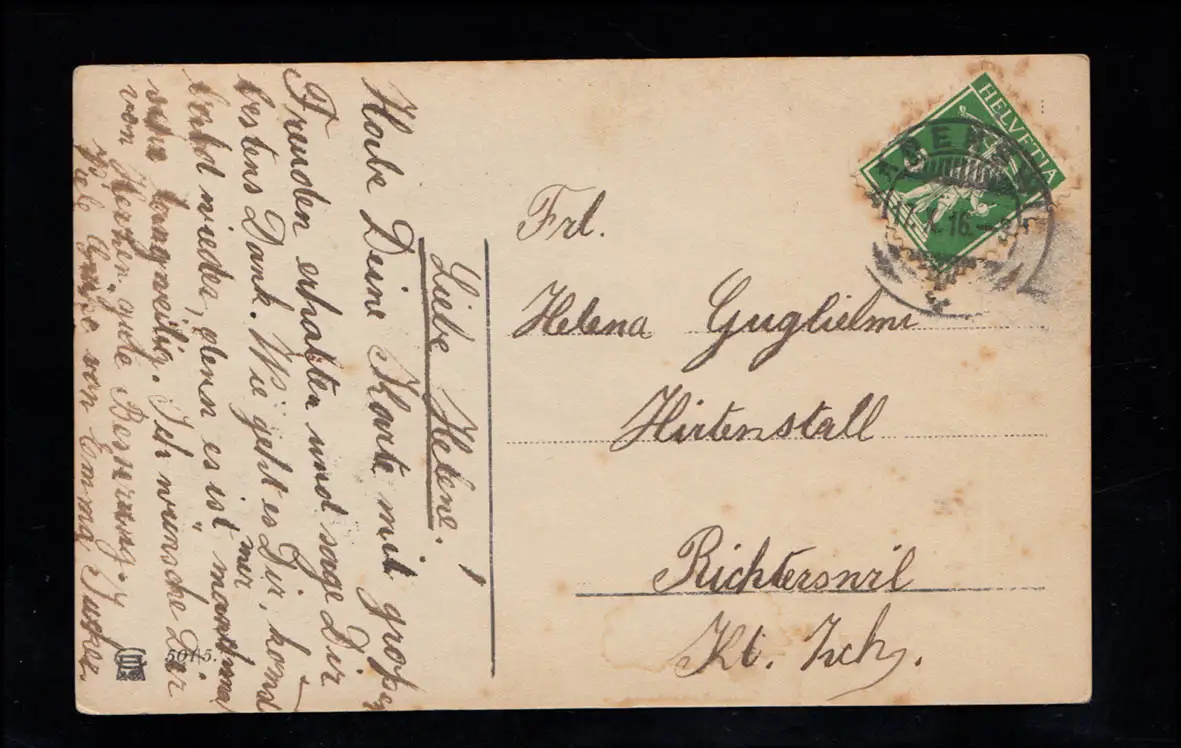 Liebe Helene!
Habe Deine Karte mit großen
Freuden erhalten und sage Dir
bestens Dank. Wie geht es Dir, komd
mer
bald wieder, denn es ist manchma
sehr langweilig. Ich wünsche Dir
von Herzen gute Beserung.
Viel Grüße von Emma
5015.
Frl.
Helena Guglielmi
Hirtenstall
Richterswil
Kt. Zch.
HELVETIA
16.